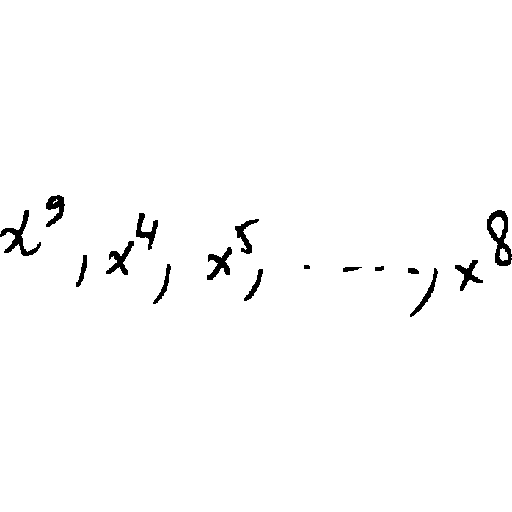 x⁹, x⁴, x⁵, ....., x⁸